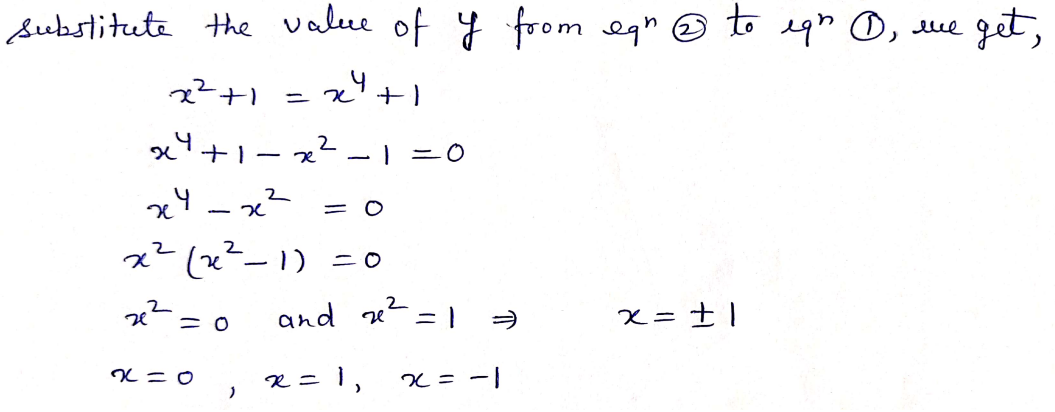 substitute the value of y from eqn ② to eqn ①, we get,
x² + 1 = x⁴ + 1
x⁴ + 1 − x² − 1 = 0
x⁴ − x² = 0
x² (x² − 1) = 0
x² = 0 and x² = 1 ⇒ x = ± 1
x = 0 , x = 1, x = −1